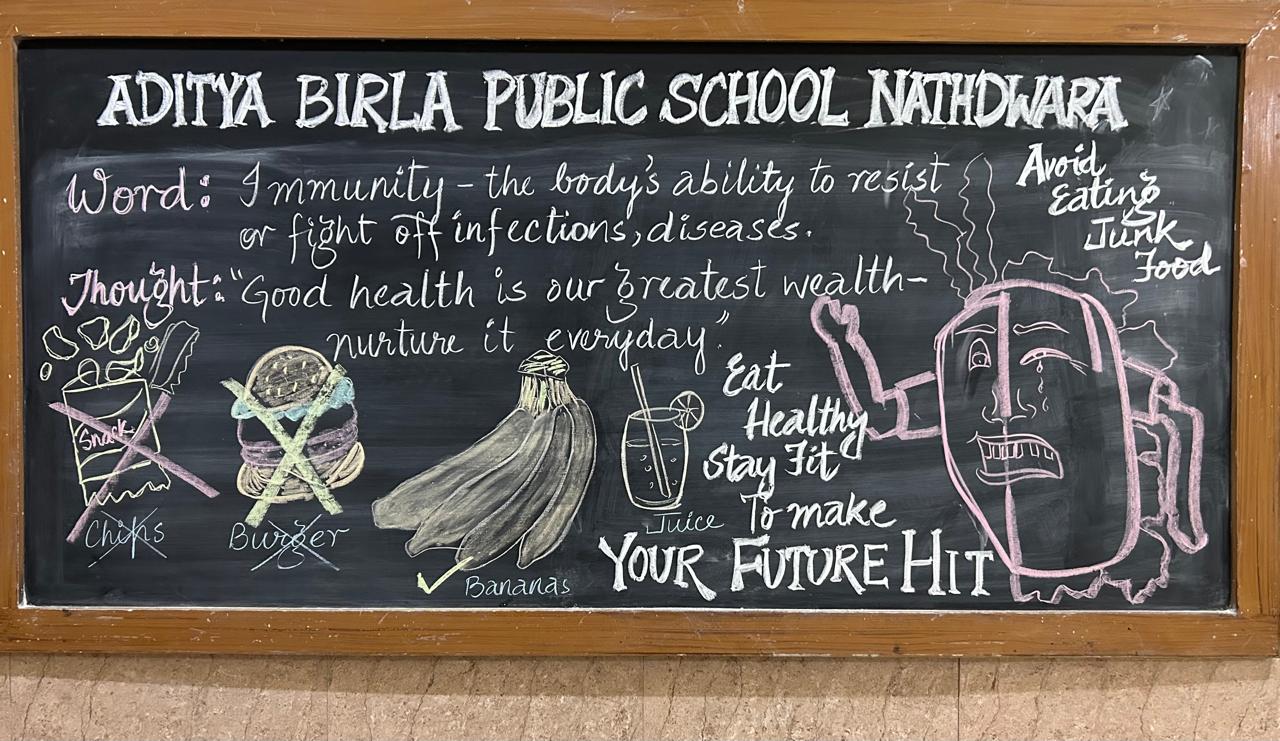 ADITYA BIRLA PUBLIC SCHOOL NATHDWARA
Word: Immunity - the body's ability to resist
or fight off infections, diseases.
Thought: "Good health is our greatest wealth-
nurture it everyday".
Avoid
Eating
Junk
Food
Snack
Chips
Burger
Bananas
Juice
Eat
Healthy
Stay Fit
To make
YOUR FUTURE HIT